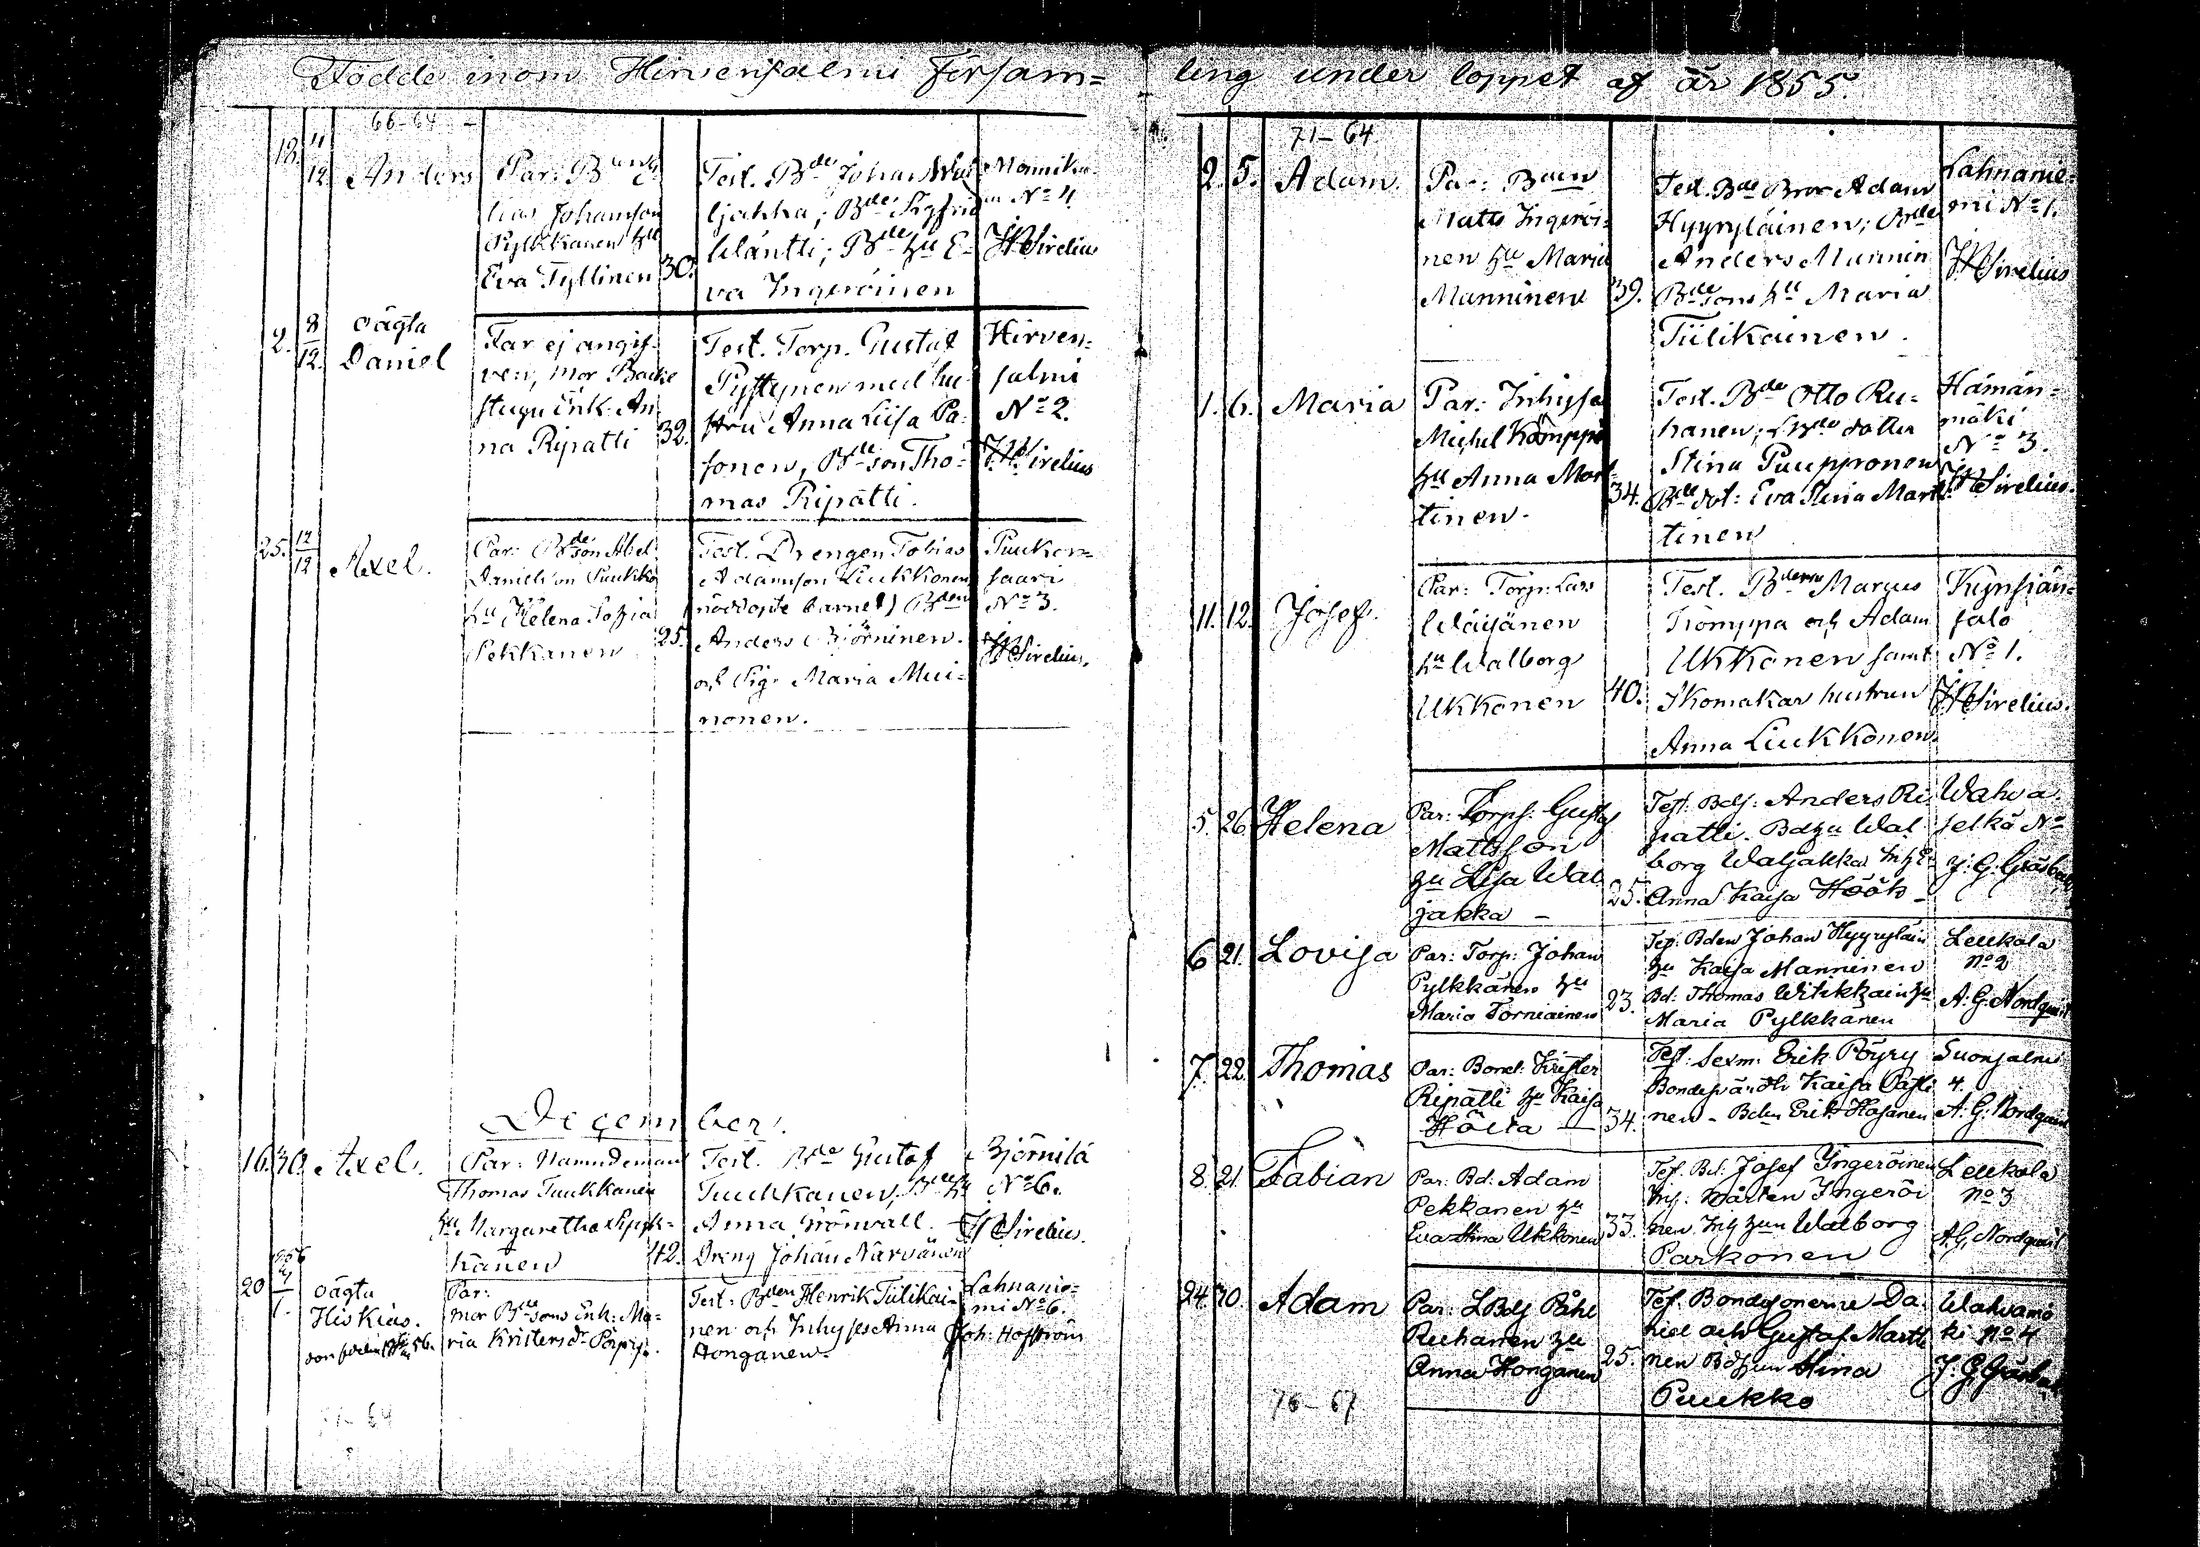 Födde inom Hirvensalmi Församling under loppet af år 1855.
66-64
18. 4/12 Anders
Par: Bden E-
lias Johansson
Pylkkänen hu
Eva Tyllinen 30.
Test. Bde Johan Wal
jakka; Bde Sigfrid
Wäntti; Bde hu E-
va Ingeröinen
No 4
JHSirelius
2. 8/12. oägta
Daniel
Far ej angif-
ven, mor Backe
stugu Enk. An
na Ripatti 32.
Test. Torp. Gustaf
Pyttynen med hu-
stru Anna Lisa Pa-
sonen, Bde son Tho-
mas Ripatti.
Hirven-
salmi
No 2.
JHSirelius
25. 12/12 Axel.
Par: Bde son Abel
Danielsson Puukko
hu Helena Sofia
Pekkanen 25.
Test. Drengen Tobias
Adamsson Liukkonen
(nöddöpte barnet) Bden
Anders Björninen.
och Pig. Maria Mui-
nonen.
Puukon-
saari
No 3.
JHSirelius.
December.
16. 30. Axel.
Par: Namndeman
Thomas Tuukkanen
hu Margaretha
känen 42.
Test. Bde Gustaf
Tuukkanen, Bde hu
Anna Grönvall.
Dreng Johan Närvänen
Björnilä
No 6.
JHSirelius.
1856
20 /1. oägta
Hiskias.
Par:
mor Bde sons Enk: Ma-
ria Kristersdr Pöyry.
Test: Bden Henrik Tiilikai-
nen och Inhyses Anna
Honganen.
Lahnanie-
mi No 6.
Joh: Hoffström
71-64
71-64
2. 5. Adam.
Par: Bden
Matts Ingeröi-
nen hu Maria
Manninen 39.
Test. Bde Bror Adam
Hyyryläinen; Bde
Anders Mannin
Bde sons hu Maria
Tiilikainen.
Lahnanie-
mi No 1.
JHSirelius
1. 6. Maria
Par: Inhyses
Michel Kämppi
hu Anna Mart-
tinen. 34.
Test. Bde Otto Ru-
hanen; LBde dotter
Stina Paupponen
Bde dot: Eva Stina Mart-
tinen
Hämän-
mäki
No 3.
JHSirelius.
11. 12. Josef.
Par: Torp: Lars
Wäisänen
hu Walborg
Ukkonen 40.
Test. Bderne Marcus
Tromppa och Adam
Ukkonen samt
Skomakar hustrun
Anna Liukkonen.
Kynsiän-
salo
No 1.
JHSirelius.
5. 26. Helena
Par: Torp: Gustaf
Mattsson
hu Lisa Wal
jakka – 25.
Test. Bds: Anders Ri
patti. Bdhu Wal
borg Waljakka
Anna Kaisa Höök –
Wahva
selkä No
J: G: Gråsbeck
6 21. Lovisa
Par: Torp: Johan
Pylkkänen hu
Maria Torniainen 23.
Tes: Bden Johan Hyyryläin
hu Kaisa Manninen
Bd: Thomas Wihkkain hu
Maria Pylkkänen
Leukola
No 2
A: G: Nordquist
7. 22. Thomas
Par: Bond: Krister
Ripatti hu Kaisa
Hölta – 34.
Test: Sexm: Erik Pöyry
Kaisa Pasti
nen – Bden Erik Hasanen
Suonsalmi
4.
A: G: Nordquist
8. 21. Fabian
Par: Bd: Adam
Pekkanen hu
Eva Stina Ukkonen 33.
Tes: Bd: Josef Yngeröinen
Inh: Mårten Yngeröi
nen Inh hun Walborg
Parkonen
Leukola
No 3
A. G. Nordquist
24. 10. Adam
Par: LBds Påhl
Ruhanen hu
Anna Honganen 25.
Tes: Bondesonerne Da-
niel och Gustaf Martti
nen Bdhun Stina
Puukko
Wahvamä
ki No 4
J. G. Gråsbeck
76-67